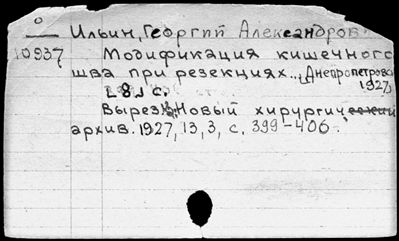 О Ильин, Георгий Александров
10937 Модификация кишечного
шва при резекциях... Днепропетровск
1927,
[8] с.
Вырез. Новый хирургический
архив. 1927, 13, 3, с. 399-406.